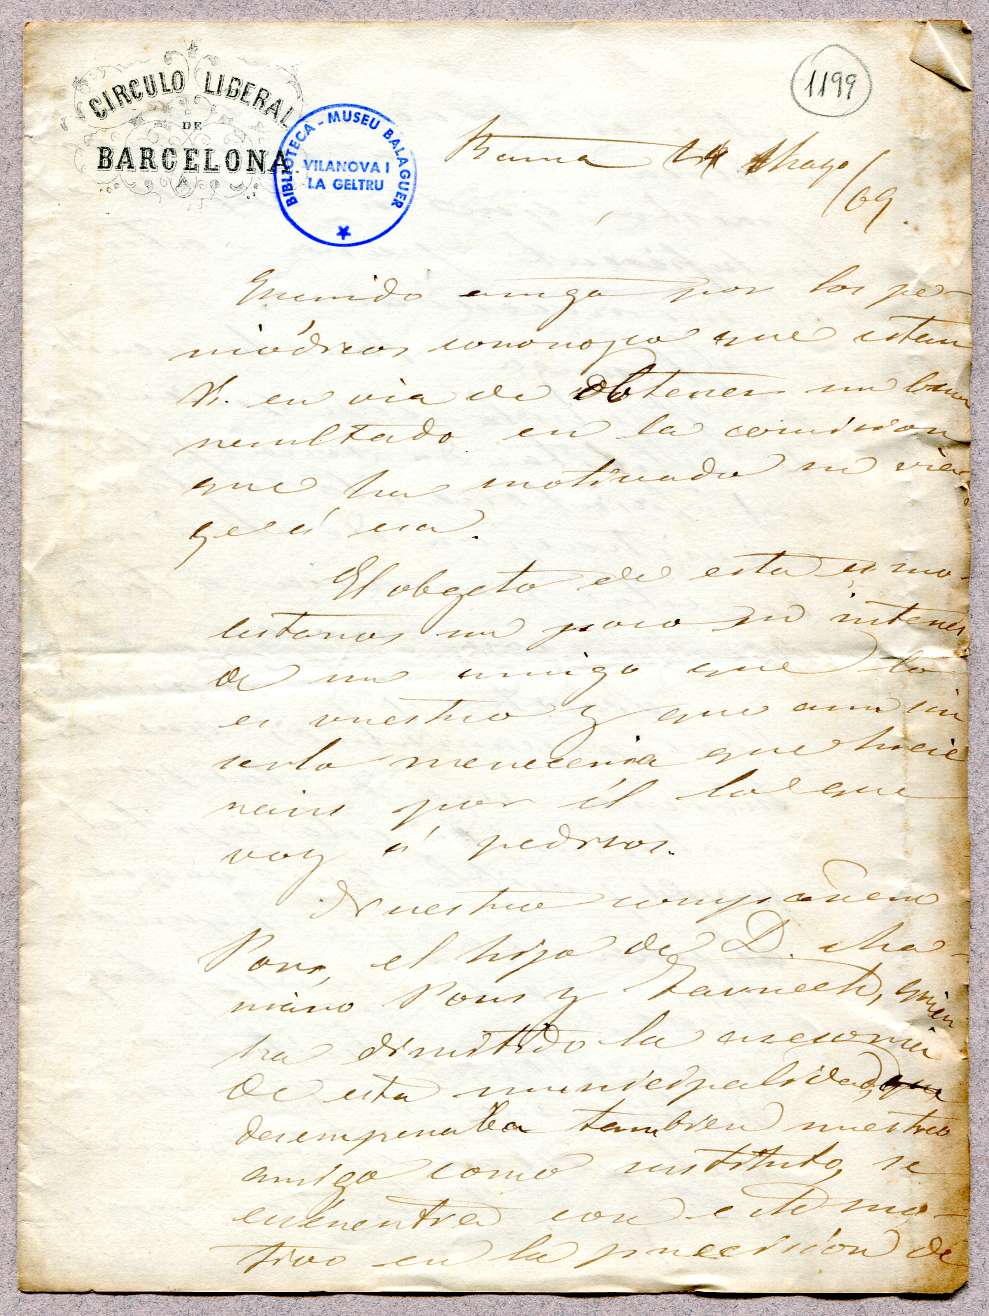 CIRCULO LIBERAL
DE
BARCELONA
BIBLIOTECA - MUSEU BALAGUER
VILANOVA I
LA GELTRU
1199
Barna 14 Mayo /69.
Querido amigo por los pe-
riódicos conozco que estan
Vs. en via de obtener un buen
resultado en la comision
que ha motivado su via-
ge á esa.
El obgeto de esta es mo-
lestaros un poco en interes
de un amigo que lo
es vuestro y que aun sin
serlo mereceria que hicie
rais por él lo que
voy á pediros.
Nuestro compañero
Pons, el hijo de D. Ma-
riano Pons y Tarrech, quien
ha dimitido la asesoria
de esta municipalidad, que
desempeñaba tambien nuestro
amigo como sustituto, se
encuentra con este mo-
tivo en la precision de